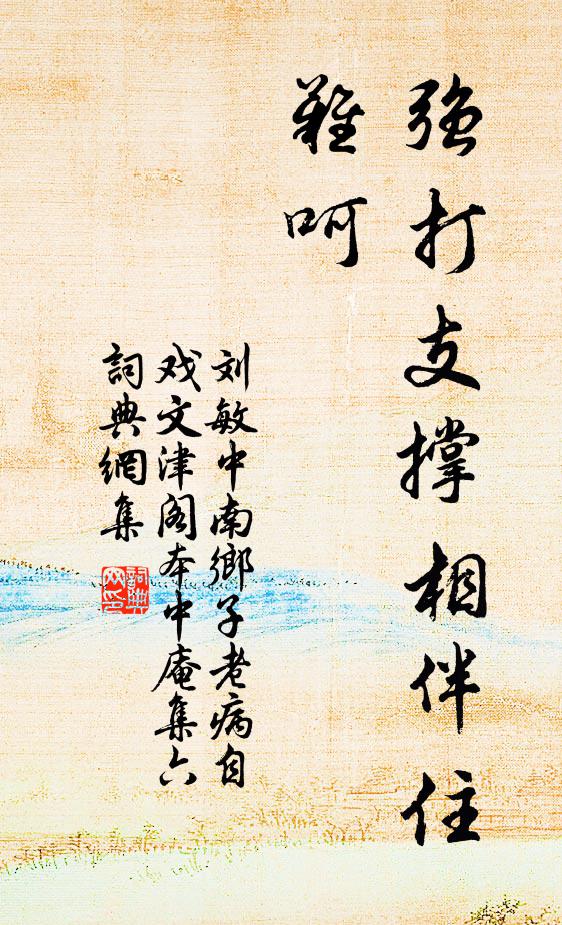 强打支撑相伴住
難呵
刘敏中南鄉子老病自
戏文津阁本中庵集六
詞典網集
詞典网印